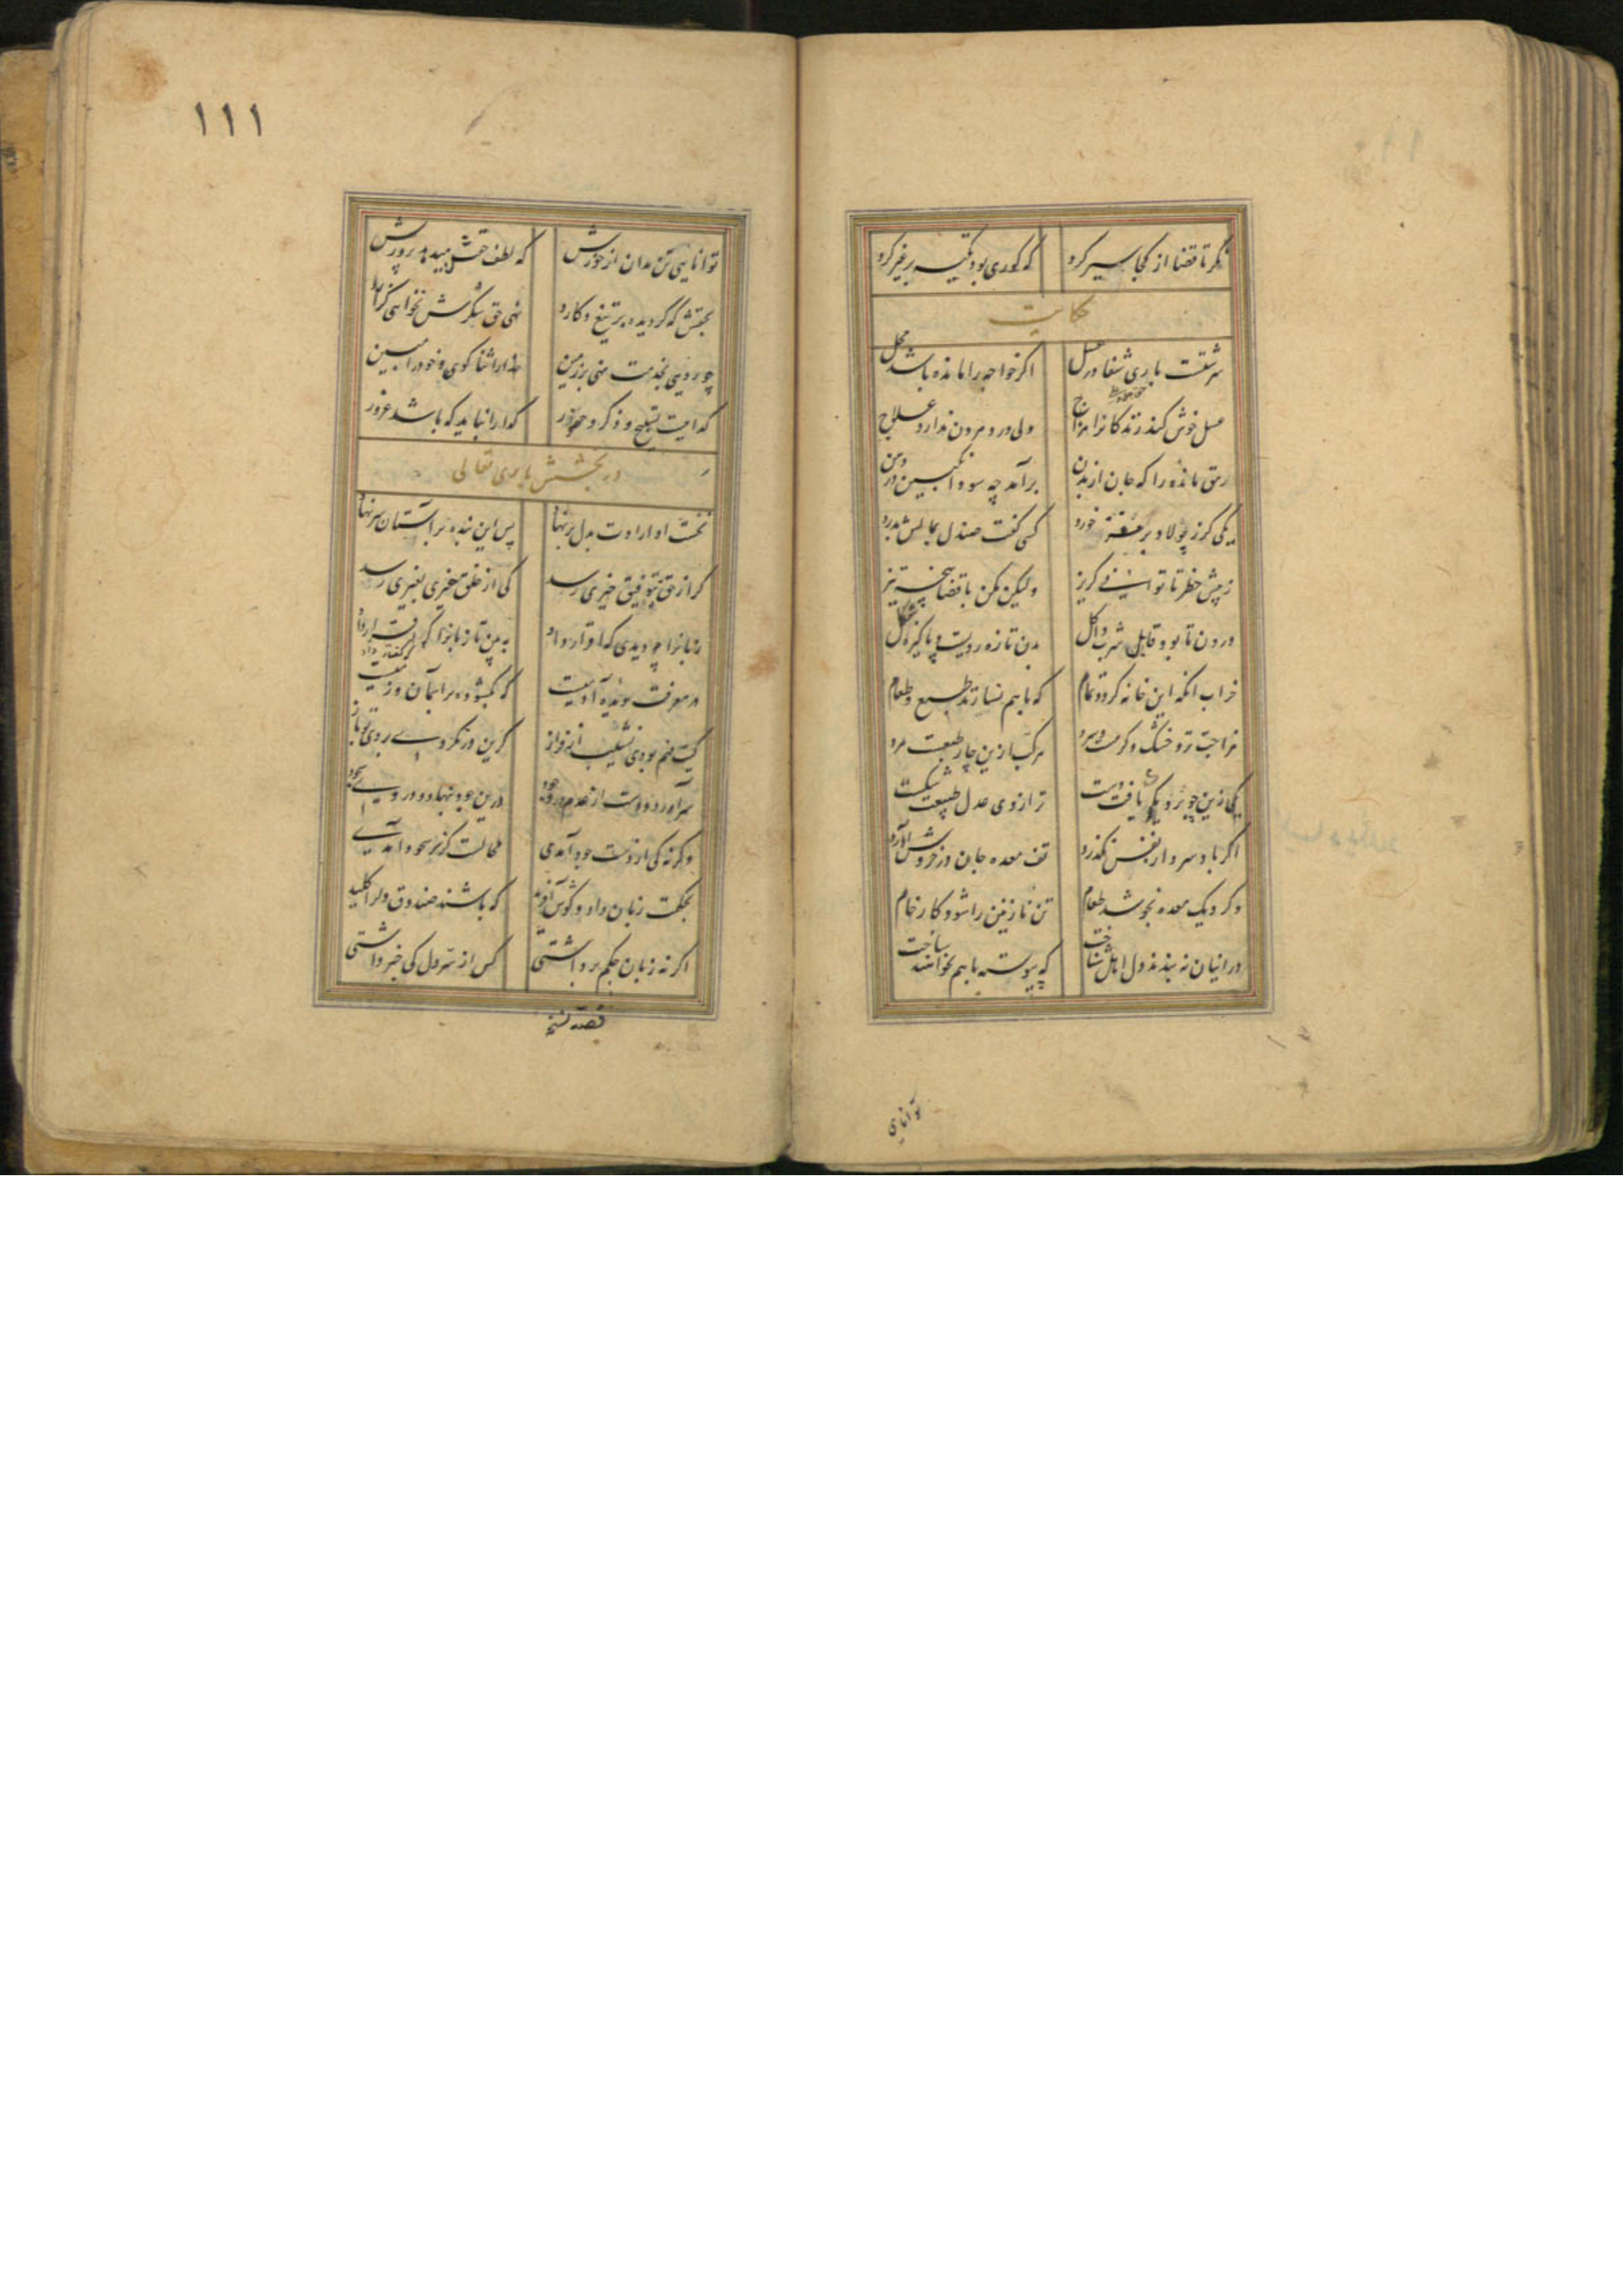 نگر تا قضا از کجا سیر کرد که کوری بود تکیه بر غیر کرد
حکایت
سرشتست باری شفا در عسل اگر خواجه را مانده باشد محل
عسل خوش کند زندکانرا مزاج ولی درد مردن ندارد علاج
رمق مانده را که جان از بدن برآمد چه سود انگبین در دهن
یکی کرز پولاد بر مغز خورد کسی گفت صندل بمالش بدرد
ز پیش خطر تا توانی کریز ولیکن مکن با قضا پنجه تیز
درون تا بود قابل شرب و اکل بدن تازه رویست و پاکیزه شکل
خراب انکه این خانه کردد تمام که با هم نسازند طبع و طعام
مزاجت تر و خشک و گرمست و سرد مرکب ازین چار طبعست مرد
یکی زین چو بر دیگری یافت دست ترازوی عدل طبیعت شکست
اگر باد سرد از نفس نگذرد تف معده جان در خروش آورد
وگر دیک معده نجوشد طعام تن نازنین را شود کار خام
در اینان نه بندد دل اهل شناخت که پیوسته با هم نخواهند ساخت
توانایی
۱۱۱
توانایی تن مدان از خورش که لطف حقت میدهد پرورش
بحقش که گر دیده بر تیغ و کارد نهی حق شکرش نخواهی گزارد
چو رویی بخدمت نهی بر زمین خدا را ثنا گوی و خود را مبین
گداییست تسبیح و ذکر و حضور گدا را نباید که باشد غرور
در بخشش باری تعالی
نخست او ارادت بدل بر نهاد پس این بنده بر آستان سر نهاد
گر از حق نتوفیق خیری رسد کی از خلق خیری بغیری رسد
زبانرا چو دیدی که اقرار داد به بین تا زبانرا که گفتار داد
در معرفت دیده آدمیست که بگشوده بر آسمان و زمیست
کیت فهم بودی نشیب و فراز گر این در نکردی بروی تو باز
سر آورد و دست از عدم در وجود درین جود نهاد و در وی سجود
وگرنه کی از دست جود آمدی محالست کز سر سجود آمدی
بحکمت زبان داد و گوش آفرید که باشند صندوق دل را کلید
اگر نه زبان حکم برداشتی کس از سر دل کی خبر داشتی